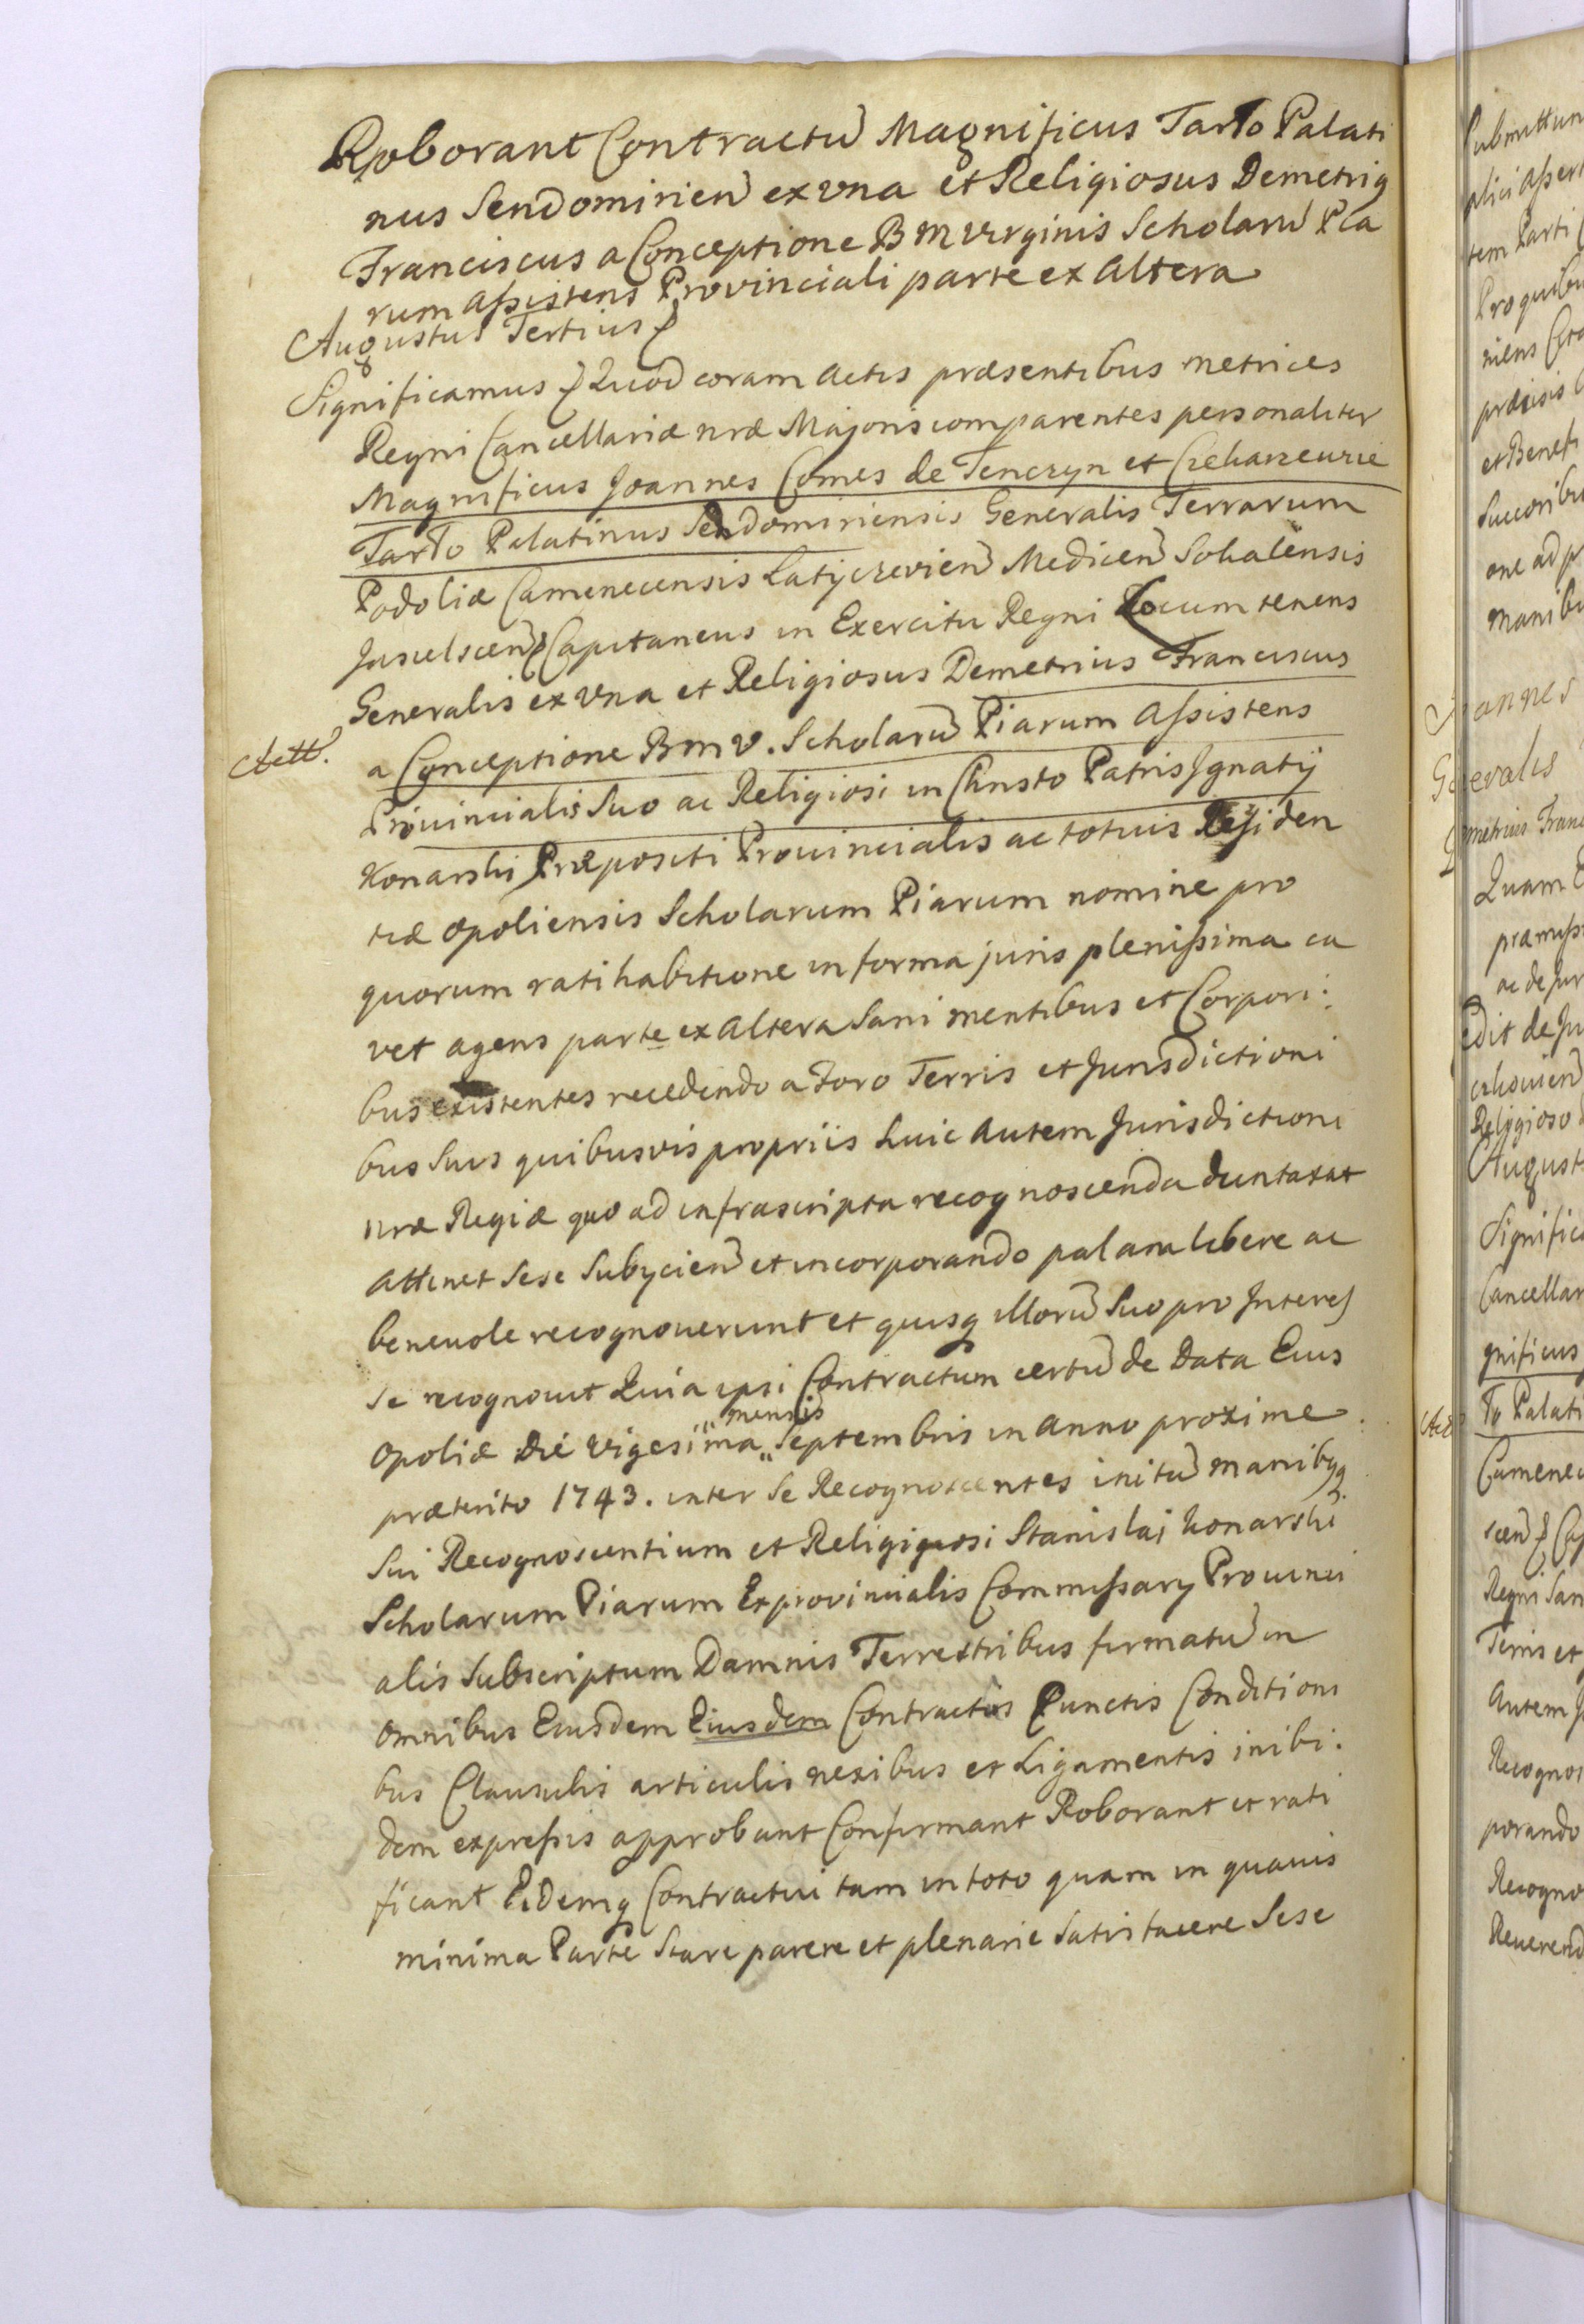 Roborant Contractu Magnificus Tarło Palati
nus Sendomirien ex vna et Religiosus Demetrig
Franciscus a Conceptione B M Virginis Scholaru Pia
rum Assistens Provinciali parte ex Altera
Augustus Tertius
Significamus Quod coram Actis præsentibus Metrices
Regni Cancellariæ nræ Majoris comparentes personaliter
Magnificus Joannes Comes de Tenczyn et Czekarzewic
Tarło Palatinus Sendomiriensis Generalis Terrarum
Podoliæ Camenecensis Latyczevien Medicen Sokalensis
Capitaneus in Exercitu Regni Locumtenens
Generalis ex vna et Religiosus Demetrius Franciscus
Actt. a Conceptione B m V. Scholaru Piarum Assistens
Prouincialis Suo ac Religiosi in Christo Patris Jgnatij
Konarski Præpositi Prouincialis ac totius Residen
tiæ Opoliensis Scholarum Piarum nomine pro
quorum ratihabitione in forma juris plenissima ca
vet agens parte ex Altera Sani mentibus et Corpori:
bus existentes recedendo a Foro Terris et Jurisdictioni
bus Suis quibusvis propriis huic Autem Jurisdictioni
nræ Regiæ quo ad infrascripta recognoscenda duntaxat
Attinet Sese Subycien et incorporando palam libere ac
beneuole recognouerunt et quisq illoru Suo pro Interes
se recognouit Quia ipsi Contractum certu de Data Eius
Opoliæ Die Vigesima „mensis„ Septembris in Anno proxime
præterito 1743. inter Se Recognoscentes initu manibq
Sui Recognoscentium et Religiquosi Stanislai Konarski
Scholarum Piarum Exprovincialis Commissary Prouinci
alis Subscriptum Damnis Terrestribus firmatu in
Omnibus Eiusdem Eiusdem Contractus Punctis Conditioni
bus Clausulis articulis nexibus et Ligamentis inibi:
dem expressis approbant Confirmant Roborant et rati
ficant Eidemq Contractui tam in toto quam in quauis
minima Parte Stare parere et plenarie Satisfacere Sese
Submittun
plici Assert
tem Parti
Pro quibu
niens
præcisis
et Benefi
Succoribu
one ad p
Manibu
Joannes
Generalis
metrius Franc
Quam
præmiss
ac de Jur
edit de Ju
Religioso
August
Signific
Cancellar
gnificus
ło Palati
Camenec
Regni San
Terris et
Autem J
Recognos
porando
Recogno
Reuerend